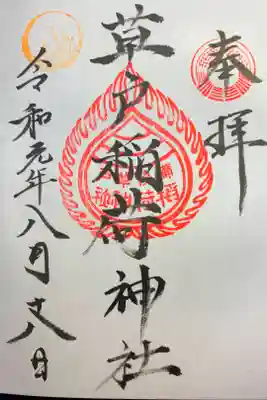 奉拝
草戸稲荷神社
令和元年八月廿八日